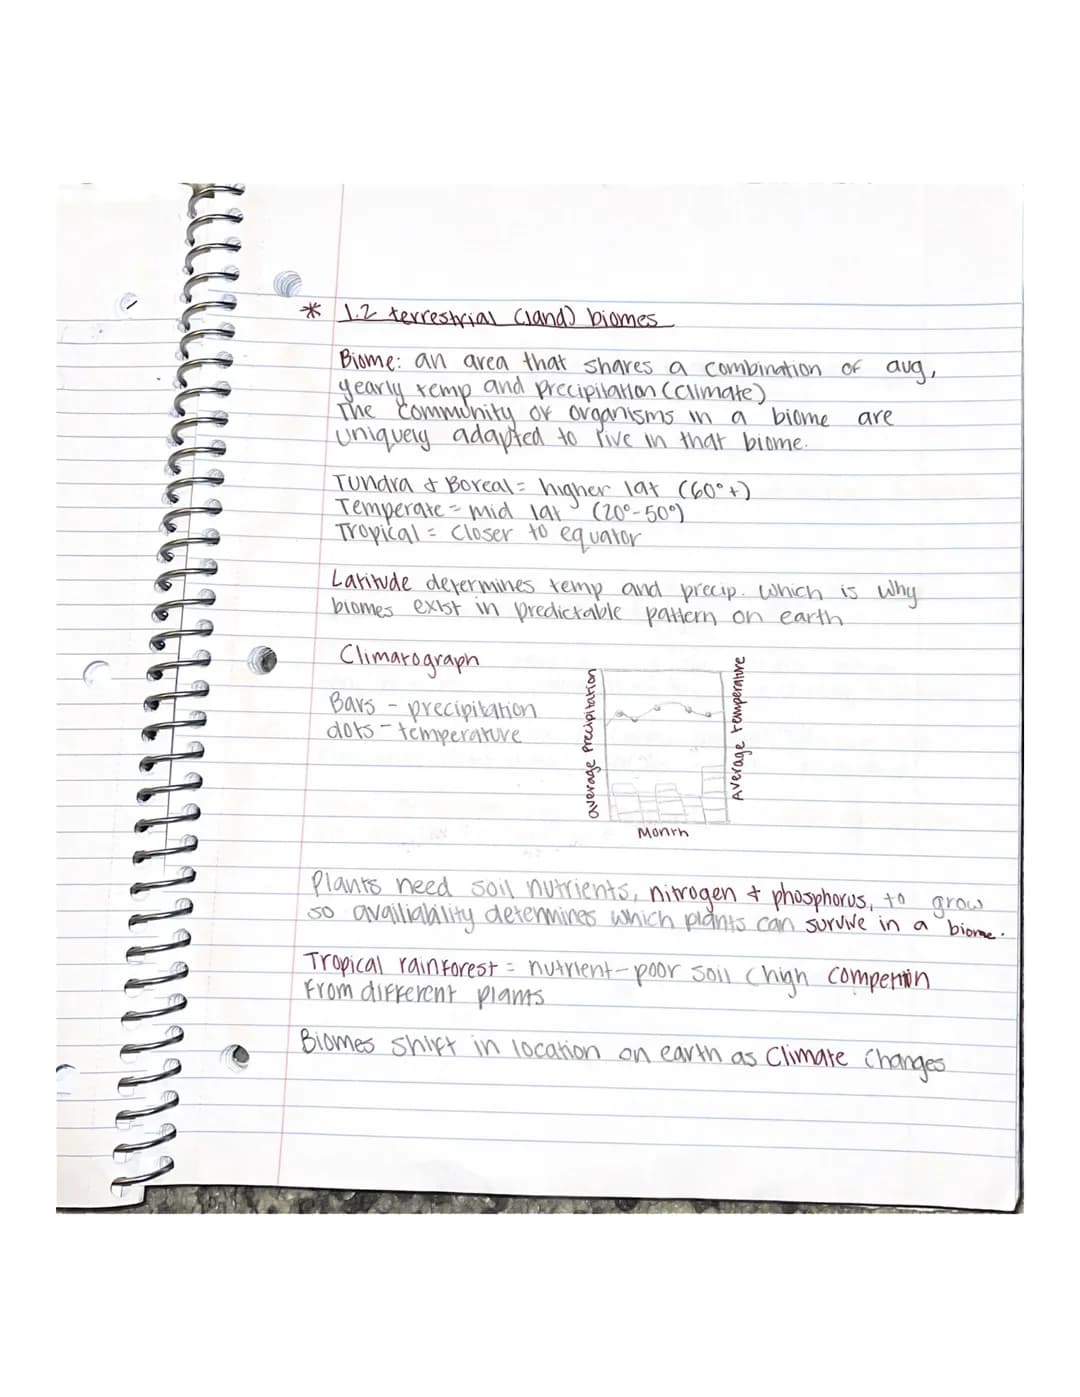 * 1.2 terrestrial (land) biomes
Biome: an area that shares a combination of avg,
yearly temp and precipitation (climate)
The community of organisms in a biome are
uniquely adapted to live in that biome.
Tundra & Boreal = higher lat (60°+)
Temperate = mid lat (20°-50°)
Tropical = closer to equator
Latitude determines temp and precip. which is why
biomes exist in predictable pattern on earth
Climatograph
Bars - precipitation
dots - temperature
average precipitation
Average temperature
Month
Plants need soil nutrients, nitrogen & phosphorus, to grow
so availiability determines which plants can survive in a biome.
Tropical rainforest = nutrient-poor soil (high competition
from different plants
Biomes shift in location on earth as climate changes